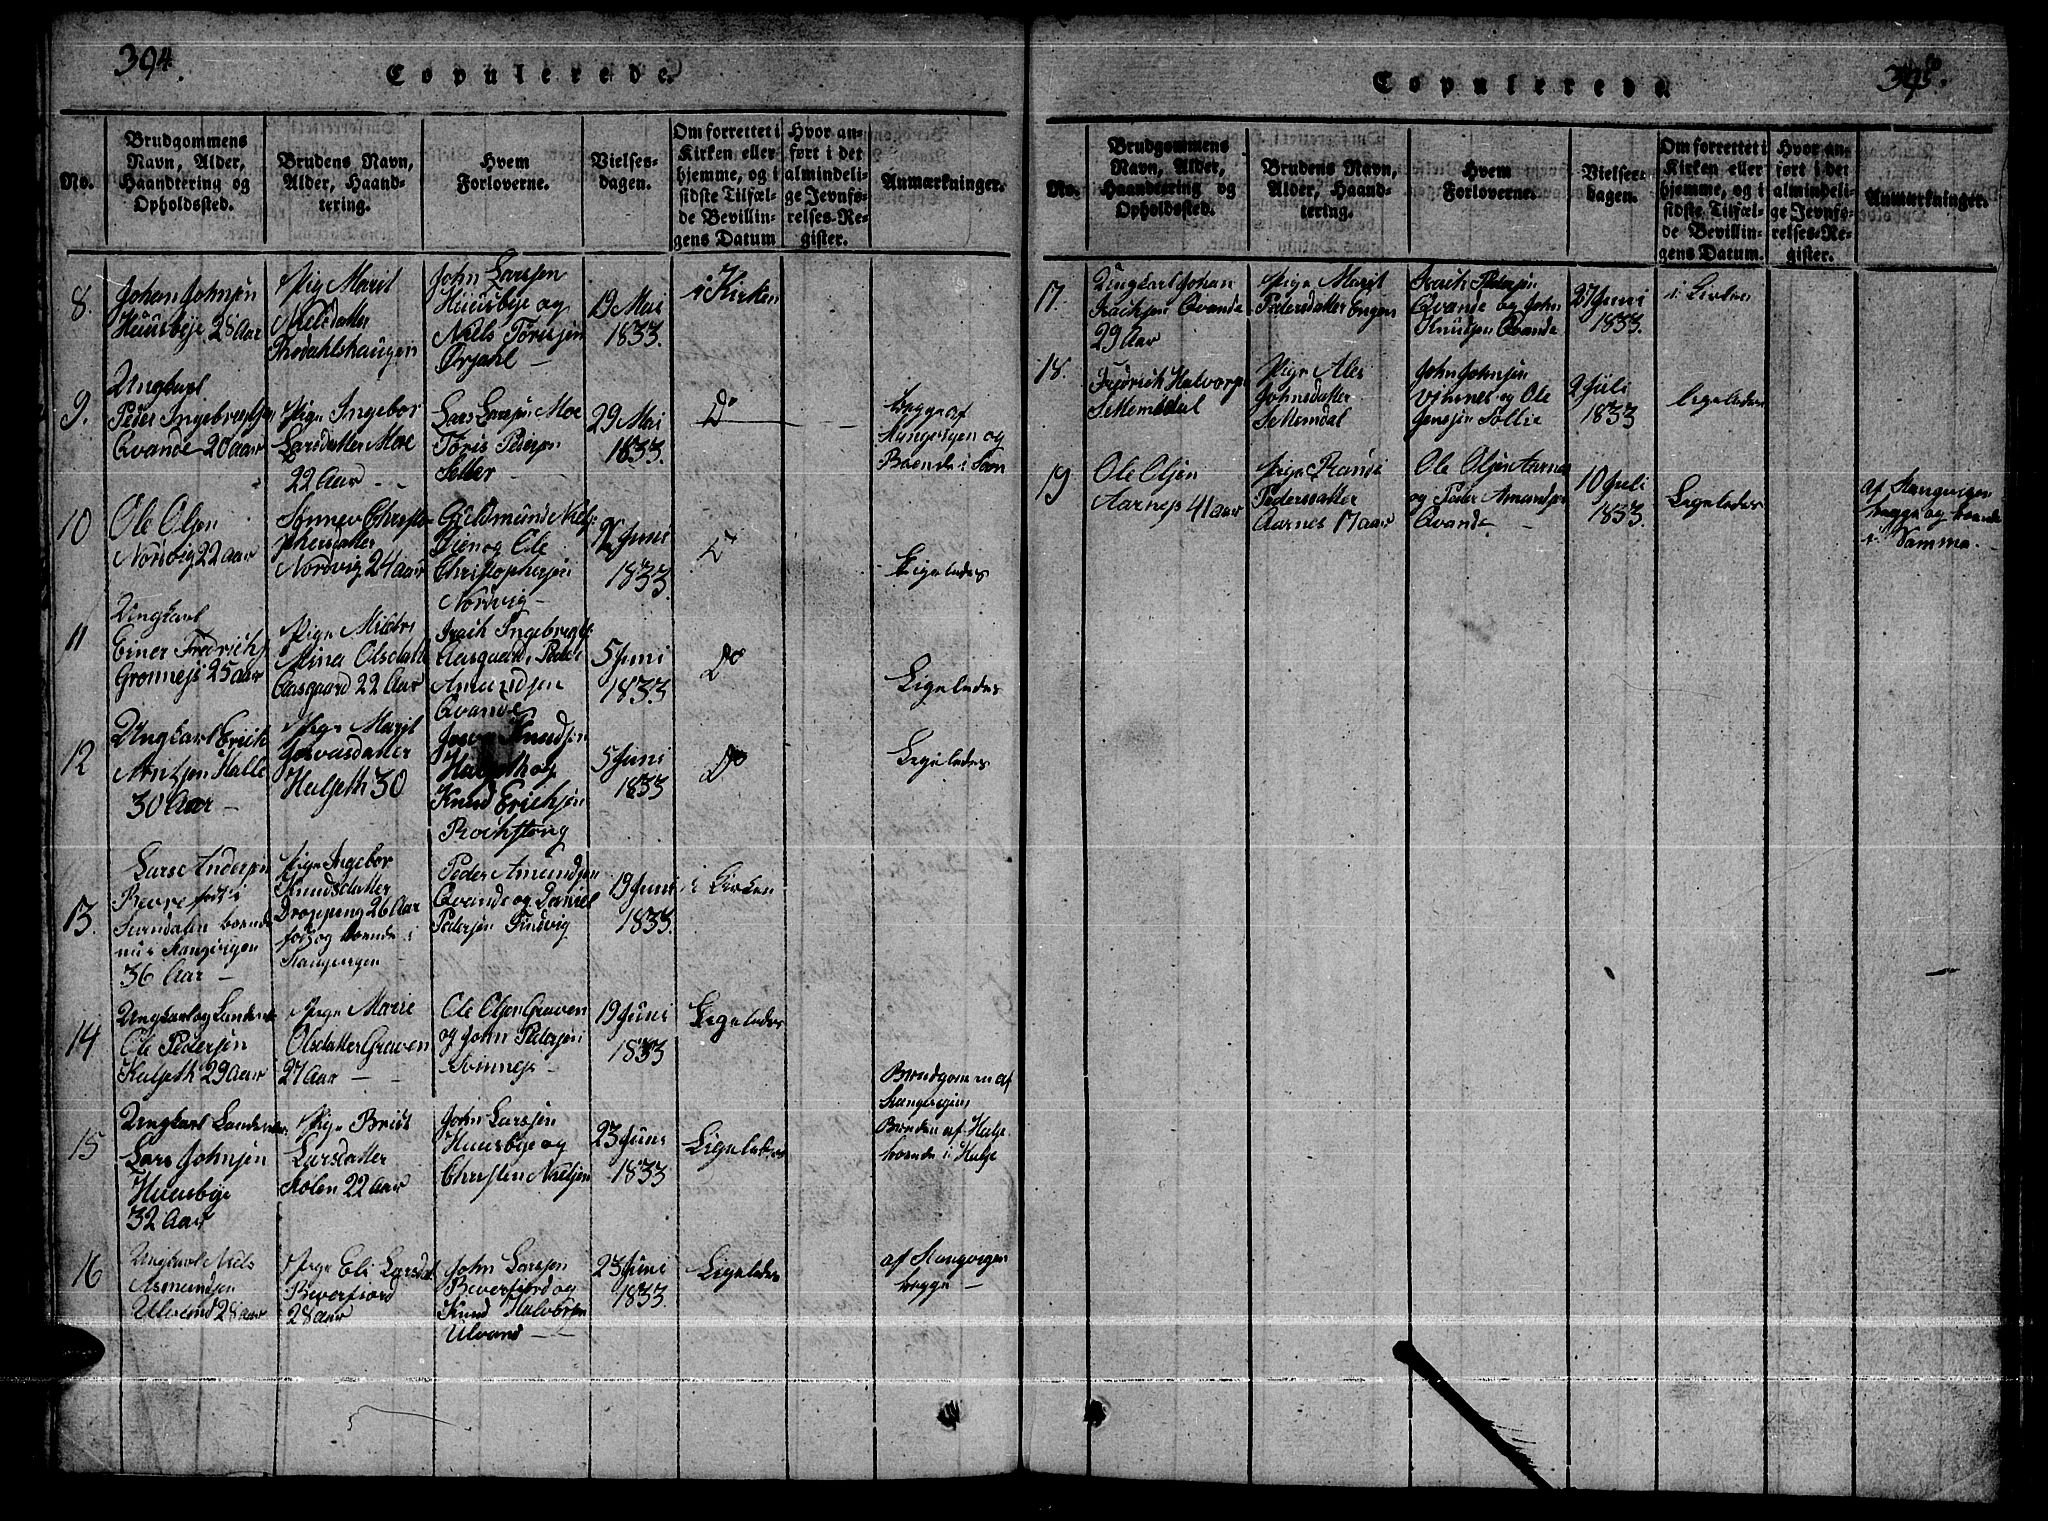 394.
Copulerede.
No.
Brudgommens
Navn, Alder,
Haandtering og
Opholdssted.
Brudens Navn,
Alder, Haand-
tering.
Hvem
Forloverne.
Vielses-
dagen.
Om forrettet i
Kirken eller
hjemme, og i
sidste Tilfæl-
de Bevillin-
gens Datum
Hvor an-
ført i det
almindeli-
ge Jevnfø-
relses-Re-
gister.
Anmærkninger.
8.
Johan Johnsen
Huusbye 28 Aar
Pige Marit
Nielsdatter
John Larssen
Huusbye og
Niels Törrisen
19 Mai
1833.
i Kirken
9.
Ungkarl
Peder Ingebregtsen
Qvande 20 Aar
Pige Ingebor
Larsdatter Moe
22 Aar
Lars Larsen Moe
Töris Pedersen
Sæter
29 Mai
1833.
Do
begge af
Stangvigen og
Boende i
10
Ole Olsen
Nordvig 22 aar
Sönnev Christo-
phersdatter
Nordvig 24 aar
Guldmund Niels:
og Ole
Christophersen
Nordvig
Juni
1833.
Do
Ligeledes
11
Ungkarl
Einer Fredrichs
Grønnes 25 aar
Pige
Olsdatter
Aasgaard 22 Aar
Isach Ingebregts:
Aasgaard, Peder
Amundsen
Qvande
5 Juni
1833.
Do
Ligeledes
12
Ungkarl Erich
Arntsen Halle
30 Aar
Pige Marit
Halseth 30
Knudsen
Halseth og
Knud Erichsen
5 Juni
1833
Do
Ligeledes
13.
Lars Andersen
født i
Surndalen boende
nu i Stangvigen
36 Aar
Pige Ingebor
Knudsdatter
Dropping 26 Aar
født og boende i
Stangvigen
Peder Amundsen
Qvande og Daniel
Pedersen Tindvig
19 Juni
1833.
i Kirken
14
Ungkarl og Landev:
Ole Pedersen
Halseth 29 Aar
Pige Marie
Olsdatter Graven
27 Aar
Ole Olsen Graven
og John Pedersen
19 Juni
1833
Ligeledes
15
Ungkarl Landev:
Lars Johnsen
Huusbye
32 Aar
Pige Brit
Larsdatter
22 Aar
John Larssen
Huusbye og
Christen Nielsen
23 Juni
1833.
Ligeledes
Brudgommen af
Stangvigen
Bruden af Halse
boende i Halse
16
Ungkarl Niels
Asmundsen
Ulvund 28 aar
Pige Eli Larsdat
Beverfiord
28 aar
John Larssen
Beverfiord og
Knud Halvorsen
Ulvund
23 Juni
1833.
Ligeledes
af Stangvigen
begge
Copulerede
395.
No.
Brudgommens
Navn, Alder,
Haandtering og
Opholdssted.
Brudens Navn,
Alder, Haand-
tering.
Hvem
Forloverne.
Vielses-
dagen.
Om forrettet i
Kirken eller
hjemme, og i
sidste Tilfæl-
de Bevillin-
gens Datum.
Hvor an-
ført i det
almindeli-
ge Jevnfø-
relses-Re-
gister.
Anmærkninger.
17.
Ungkarl Johan
Isachsen Qvande
29 Aar
Pige Marit
Pedersdatter Engen
Isach Pedersen
Qvande og John
Knutsen Qvande
27 Juni
1833.
i Kirken
18.
Fredrich Halvors
Settemsdal
Pige Ales
Johnsdatter
Settemdal
John Johnsen
og Ole
Jenssen Sollie
2 Juli
1833
Ligeledes
19
Ole Olsen
Aarnes 41 aar
Pige Randi
Pedersdatter
Aarnes 17 aar
Ole Olsen Aarnes
og Peder Amundsen
Qvande
10 Juli
1833.
Ligeledes
af Stangvigen
begge og boende
i